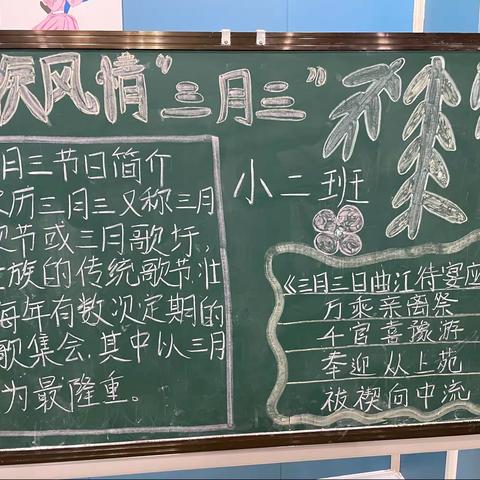 族风情“三月三”
月三节日简介
农历三月三又称三月
歌节或三日歌圩,
族的传统歌节.壮
每年有数次定期的
歌集会.其中以三月
为最隆重。
小二班
《三月三日曲江侍宴应
万乘亲离祭
千官喜豫游
奉迎从上苑
祓禊向中流